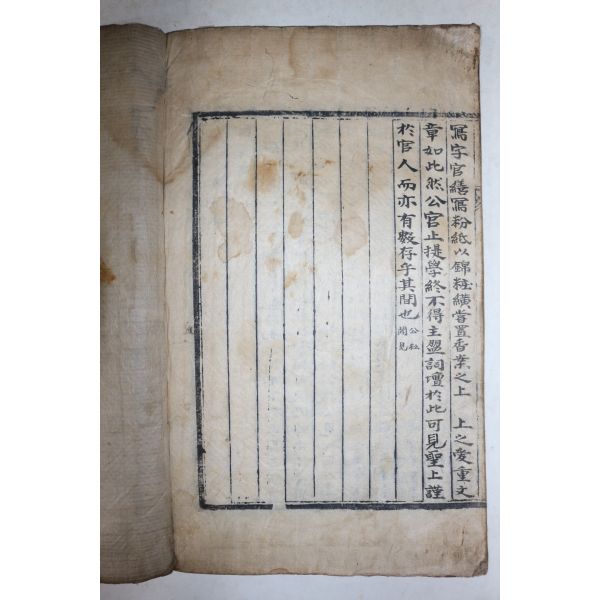 寫字官繕寫粉紙以錦粧䌙嘗置香案之上 上之愛重文
章如此然公官止提學終不得主盟詞壇於此可見聖上謹
於官人而亦有數存乎其間也 公私
聞見